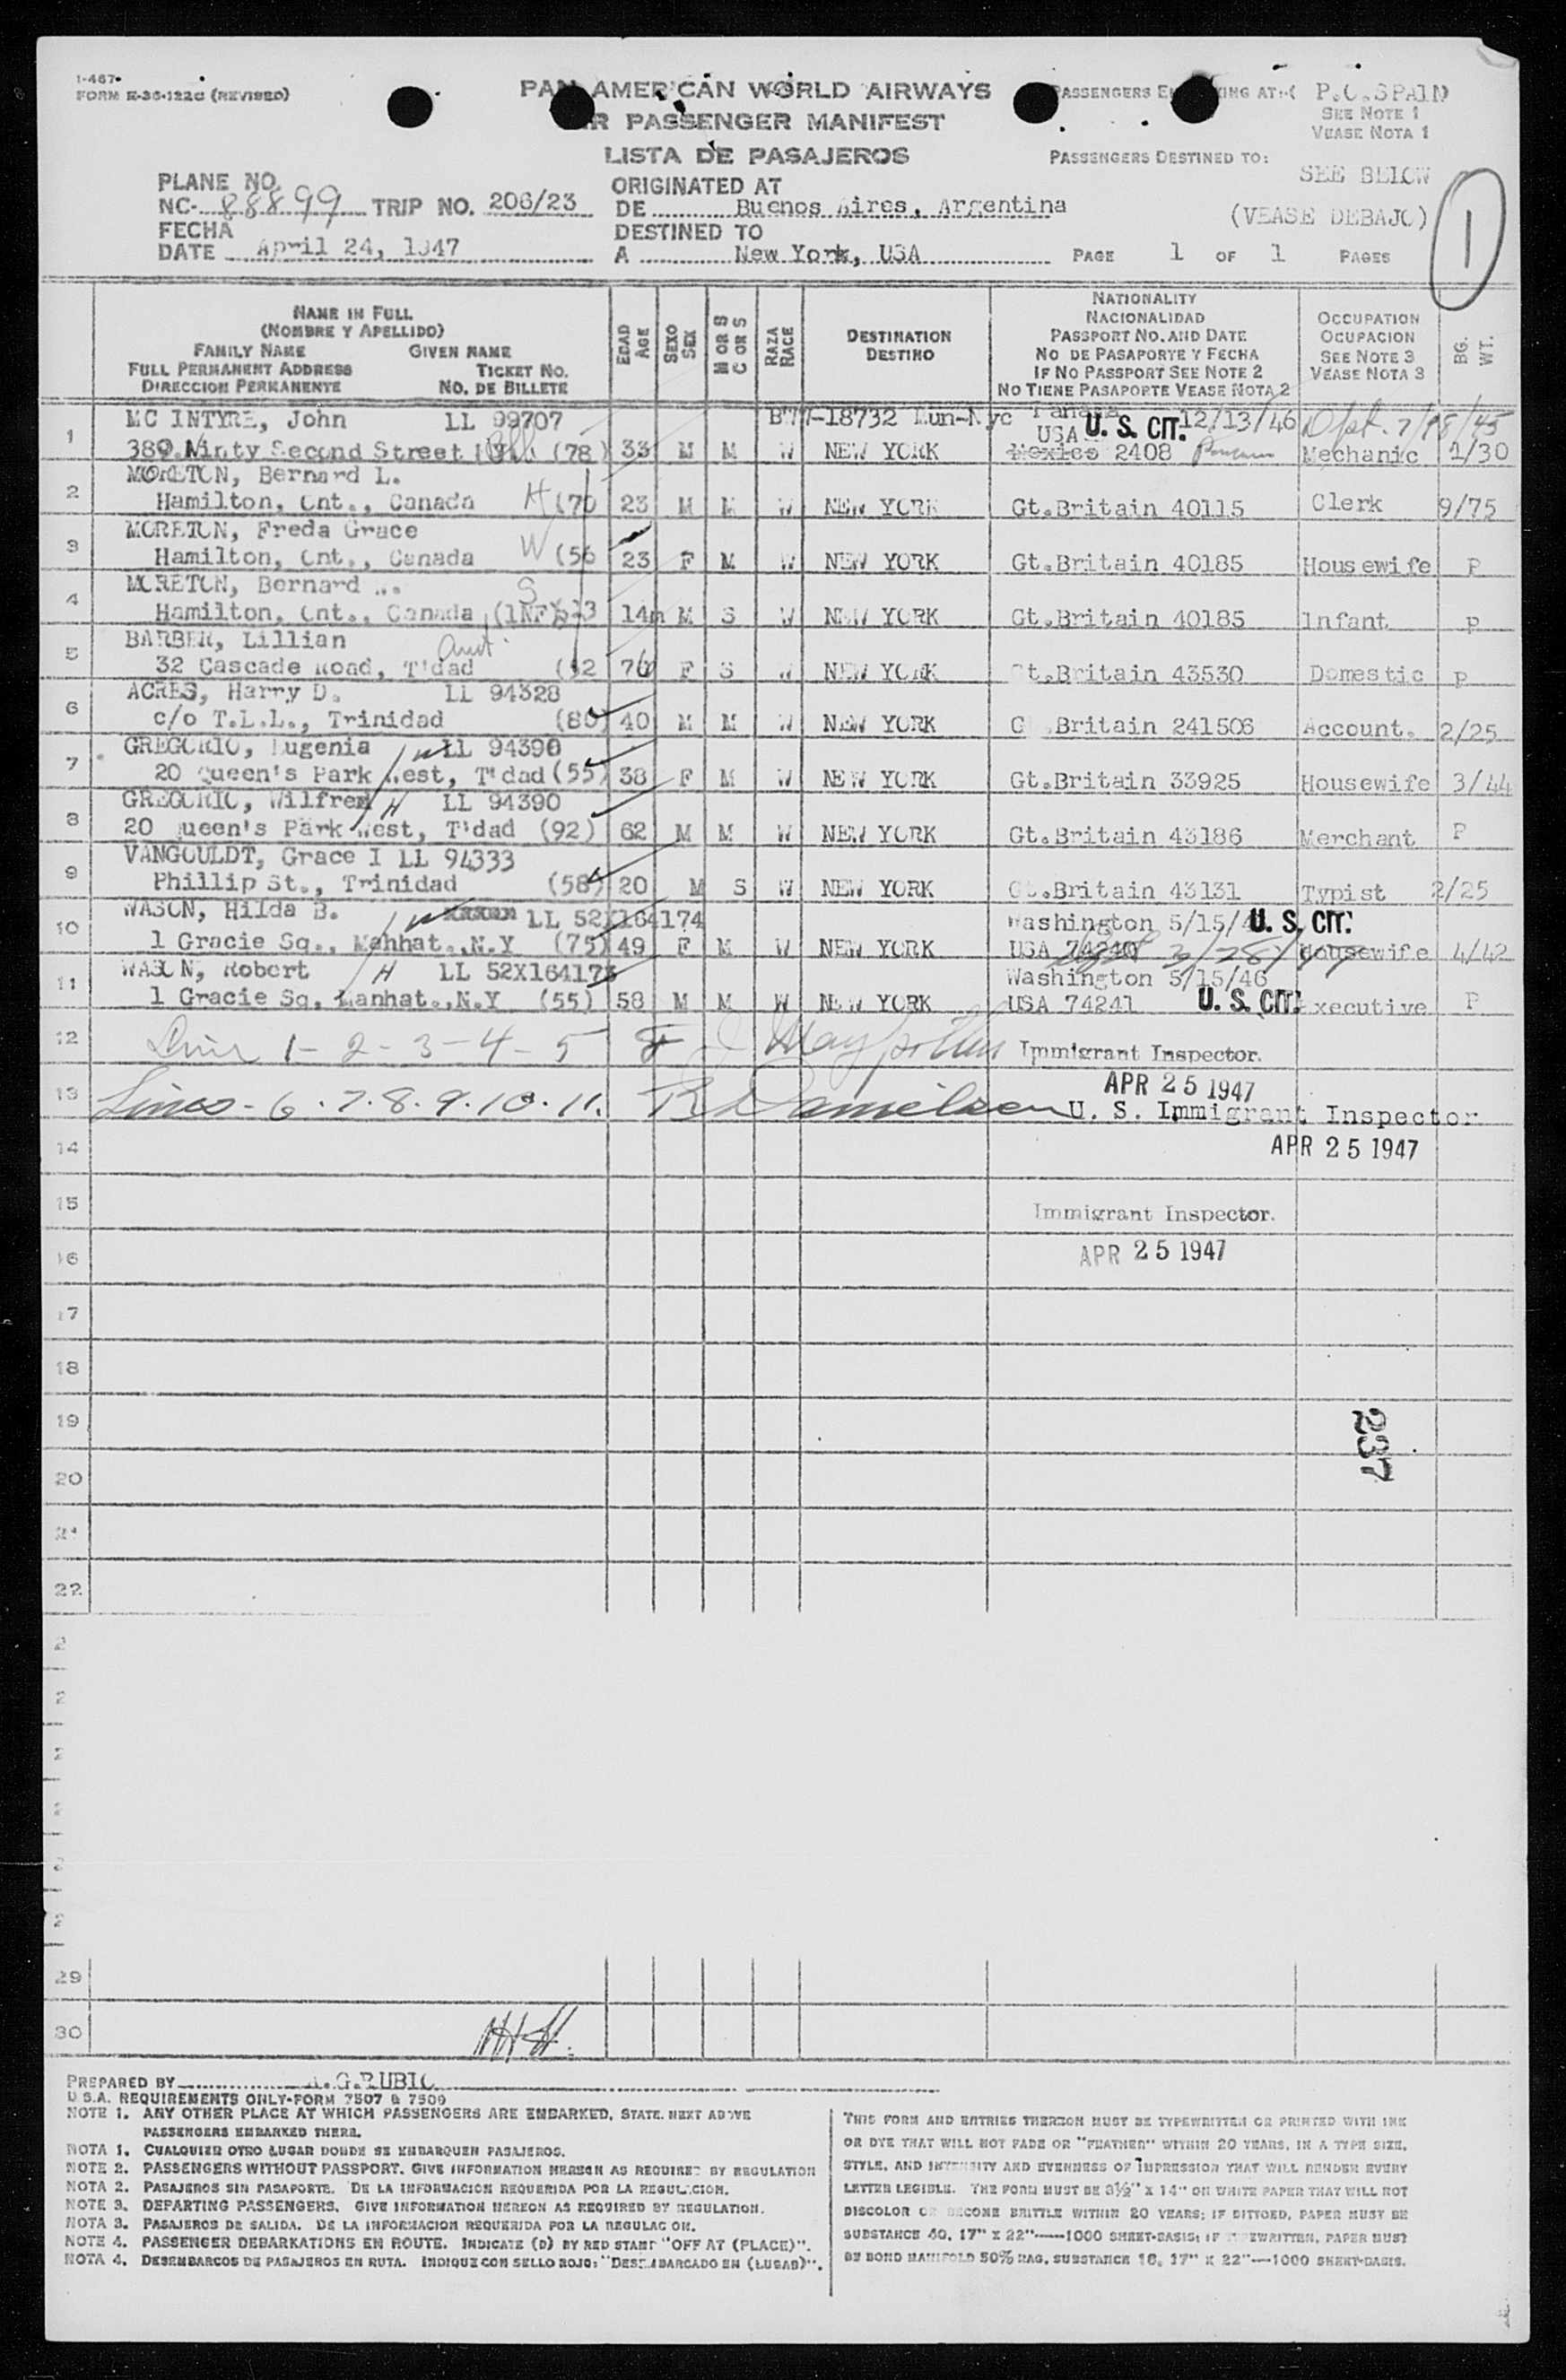 1-467
FORM E-36-122C (REVISED)
PAN AMERICAN WORLD AIRWAYS
PASSENGER MANIFEST
LISTA DE PASAJEROS
PASSENGERS AT:
P.O.SPAIN
SEE NOTE 1
VEASE NOTA 1
PASSENGERS DESTINED TO:
SEE BELOW
(VEASE DEBAJO)
1
PLANE NO.
NC- 88899 TRIP NO. 206/23
FECHA
DATE April 24, 1947
ORIGINATED AT
DE Buenos Aires, Argentina
DESTINED TO
A New York, USA
PAGE 1 OF 1 PAGES
NAME IN FULL
(NOMBRE Y APELLIDO)
FAMILY NAME GIVEN NAME
FULL PERMANENT ADDRESS TICKET NO.
DIRECCION PERMANENTE NO. DE BILLETE
EDAD AGE
SEXO SEX
M OR S C OR S
RAZA RACE
DESTINATION
DESTINO
NATIONALITY
NACIONALIDAD
PASSPORT NO. AND DATE
NO DE PASAPORTE Y FECHA
IF NO PASSPORT SEE NOTE 2
NO TIENE PASAPORTE VEASE NOTA 2
OCCUPATION
OCUPACION
SEE NOTE 3
VEASE NOTA 3
BG. WT.
MC INTYRE, John LL 99707 -18732 Panama 12/13/46
1 Ninty Second Street (78) 33 M M W NEW YORK USA U. S. CIT. Mexico 2408 Mechanic 1/30
MORETON, Bernard L.
2 Hamilton, Ont., Canada H (70 23 M M W NEW YORK Gt.Britain 40115 Clerk 9/75
MORETON, Freda Grace
3 Hamilton, Ont., Canada W (56 23 F M W NEW YORK Gt.Britain 40185 Housewife P
MORETON, Bernard
4 Hamilton, Ont., Canada S (INF) 14m M S W NEW YORK Gt.Britain 40185 Infant P
BARBER, Lillian
5 32 Cascade Road, T'dad Aunt 76 F S W NEW YORK Gt.Britain 43530 Domestic P
ACRES, Harry D. LL 94328
6 c/o T.L.L., Trinidad (80) 40 M M W NEW YORK Britain 241506 Account. 2/25
GREGORIO, Eugenia W LL 94390
7 20 Queen's Park West, T'dad (55) 38 F M W NEW YORK Gt.Britain 33925 Housewife 3/44
GREGORIO, Wilfred H LL 94390
8 20 Queen's Park West, T'dad (92) 62 M M W NEW YORK Gt.Britain 43186 Merchant P
VANGOULDT, Grace I LL 94333
9 Phillip St., Trinidad (58) 20 M S W NEW YORK Gt.Britain 43131 Typist 2/25
WASON, Hilda B. W LL 52X164174 Washington 5/15/46 U. S. CIT.
10 1 Gracie Sq., Manhat.,N.Y (75) 49 F M W NEW YORK USA 74240 Housewife 4/42
WASON, Robert H LL 52X164173 Washington 5/15/46
11 1 Gracie Sq, Manhat.,N.Y (55) 58 M M W NEW YORK USA 74241 U. S. CIT. Executive P
12 1 - 2 - 3 - 4 - 5 Immigrant Inspector.
APR 25 1947
13 Lines - 6 . 7 . 8 . 9 . 10 . 11. R Danielsen U. S. Immigrant Inspector
14 APR 25 1947
15 Immigrant Inspector.
16 APR 25 1947
17
18
19
237
20
21
22
2
2
2
2
2
2
29
30 HH
PREPARED BY A.G.RUBIO
U.S.A. REQUIREMENTS ONLY-FORM 7507 & 7509
NOTE 1. ANY OTHER PLACE AT WHICH PASSENGERS ARE EMBARKED, STATE. NEXT ABOVE
PASSENGERS EMBARKED THERE.
NOTA 1. CUALQUIER OTRO LUGAR DONDE SE EMBARQUEN PASAJEROS.
NOTE 2. PASSENGERS WITHOUT PASSPORT. GIVE INFORMATION HEREON AS REQUIRED BY REGULATION
NOTA 2. PASAJEROS SIN PASAPORTE. DE LA INFORMACION REQUERIDA POR LA REGULACION.
NOTE 3. DEPARTING PASSENGERS. GIVE INFORMATION HEREON AS REQUIRED BY REGULATION.
NOTA 3. PASAJEROS DE SALIDA. DE LA INFORMACION REQUERIDA POR LA REGULAC ON.
NOTE 4. PASSENGER DEBARKATIONS EN ROUTE. INDICATE (D) BY RED STAMP "OFF AT (PLACE)".
NOTA 4. DESEMBARCOS DE PASAJEROS EN RUTA. INDIQUE CON SELLO ROJO: "DESEMBARCADO EN (LUGAR)".
THIS FORM AND ENTRIES THEREON MUST BE TYPEWRITTEN OR PRINTED WITH INK
OR DYE THAT WILL NOT FADE OR "FEATHER" WITHIN 20 YEARS, IN A TYPE SIZE,
STYLE, AND INTENSITY AND EVENNESS OF IMPRESSION THAT WILL RENDER EVERY
LETTER LEGIBLE. THE FORM MUST BE 8½" X 14" ON WHITE PAPER THAT WILL NOT
DISCOLOR OR BECOME BRITTLE WITHIN 20 YEARS; IF DITTOED, PAPER MUST BE
SUBSTANCE 40, 17" X 22"——1000 SHEET-BASIS; IF TYPEWRITTEN, PAPER MUST
BE BOND MANIFOLD 50% RAG, SUBSTANCE 16, 17" X 22"—1000 SHEET-BASIS.